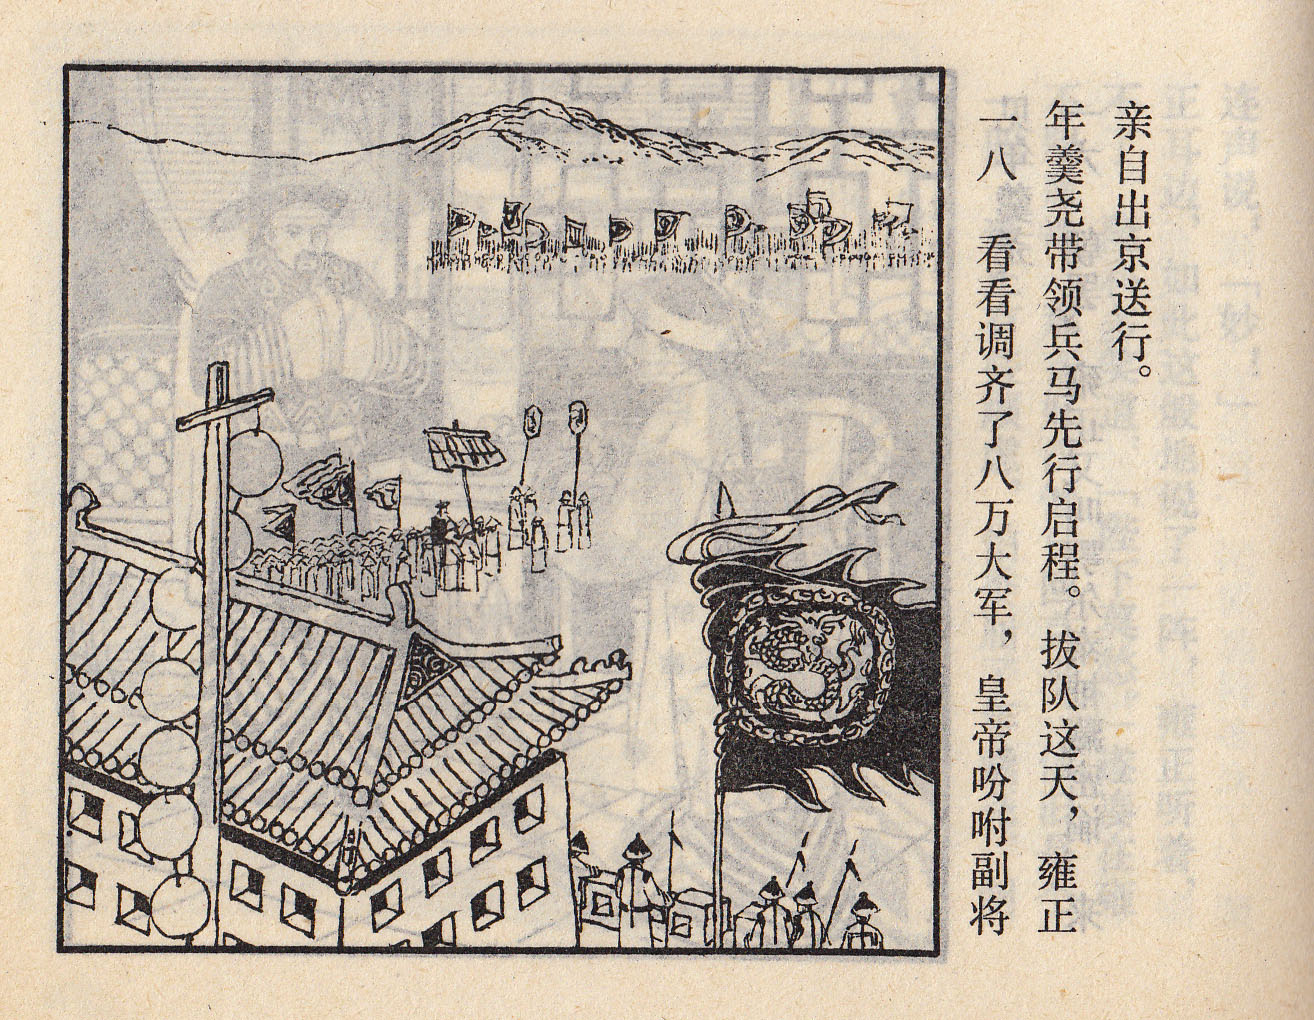 一八　看看调齐了八万大军，皇帝吩咐副将
年羹尧带领兵马先行启程。拔队这天，雍正
亲自出京送行。